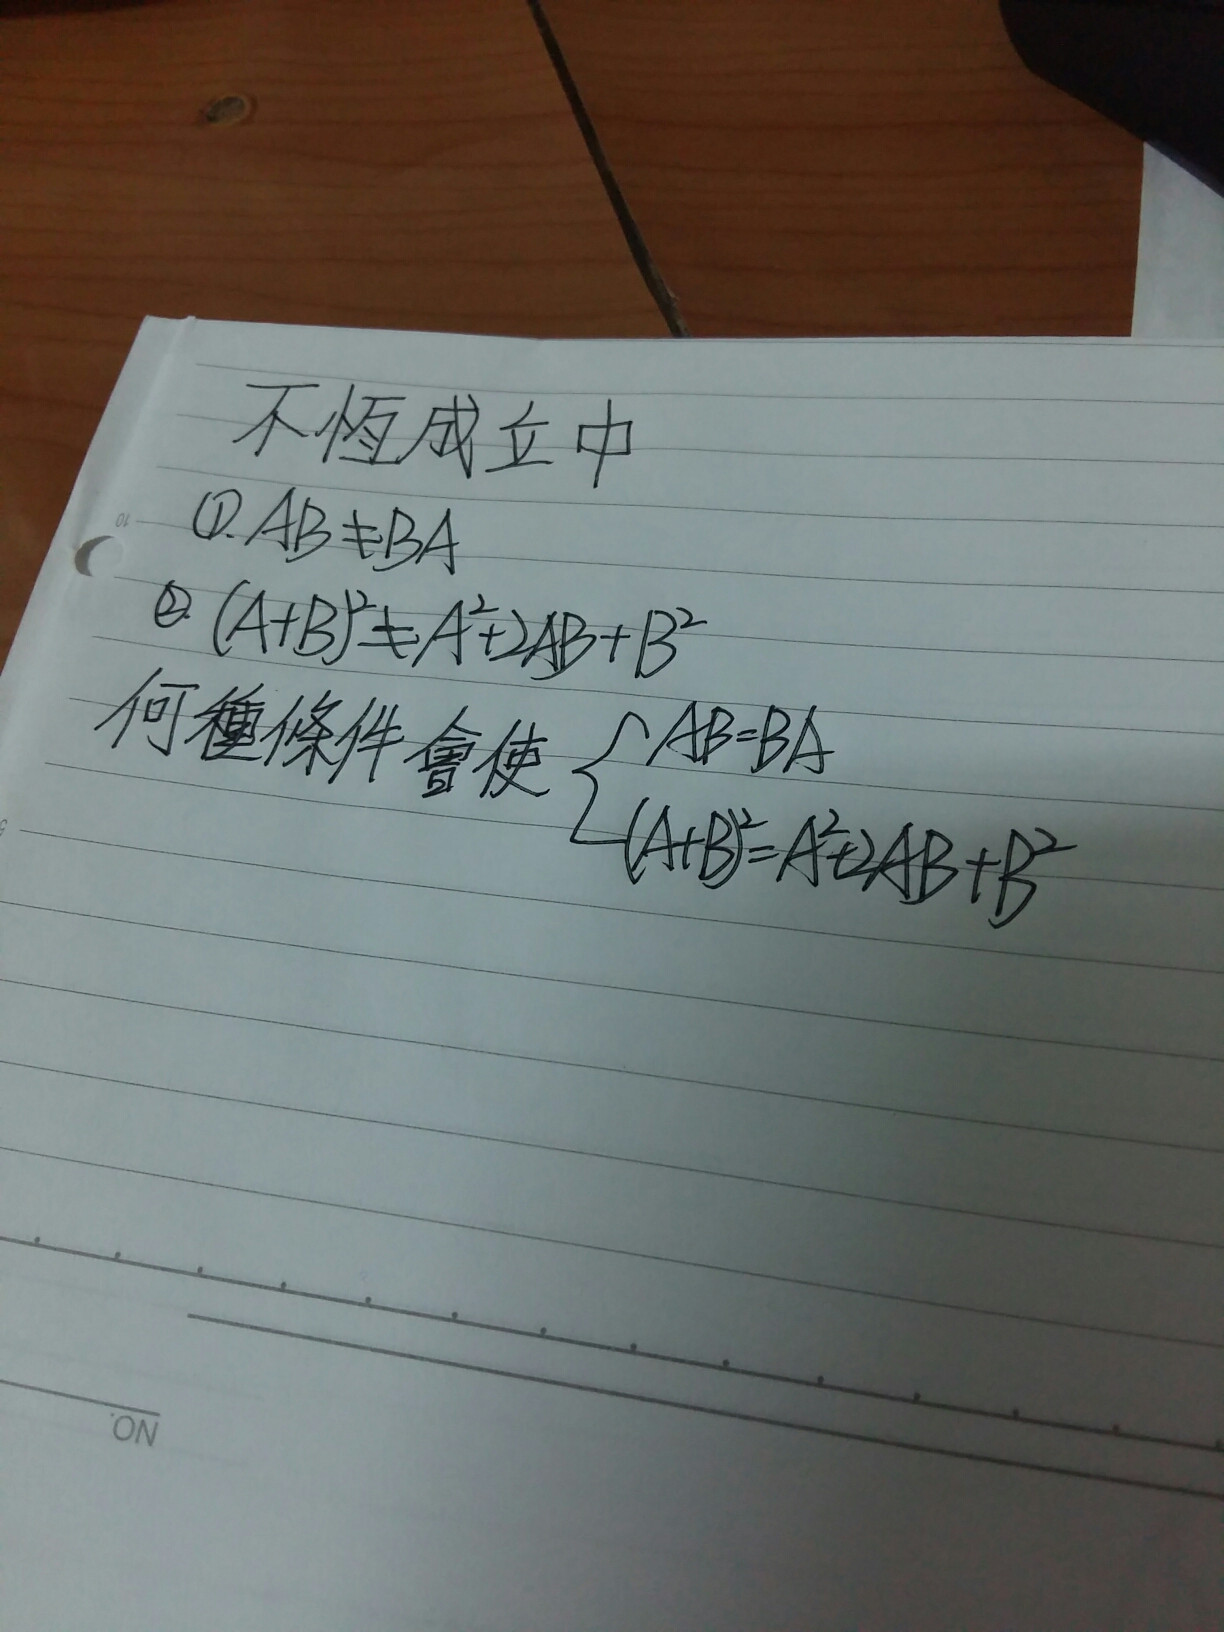 不恆成立中
①. AB≠BA
②. (A+B)²≠A²+2AB+B²
何種條件會使 { AB=BA
(A+B)²=A²+2AB+B²
10
5
NO.